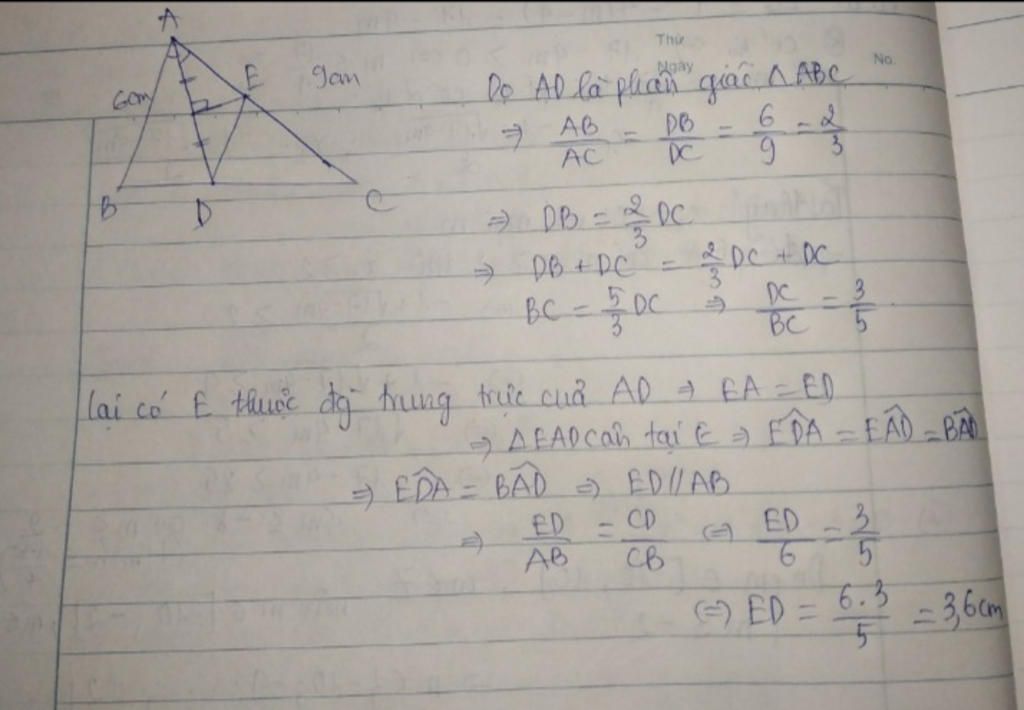 A
6cm
E
9cm
B
D
C
Thứ
Ngày
No.
Do AD là phân giác △ ABC
⇒ AB/AC = DB/DC = 6/9 = 2/3
⇒ DB = 2/3 DC
⇒ DB + DC = 2/3 DC + DC
BC = 5/3 DC ⇒ DC/BC = 3/5
lại có E thuộc đg trung trực của AD ⇒ EA = ED
⇒ △EAD cân tại E ⇒ \widehat{EDA} = \widehat{EAD} = \widehat{BAD}
⇒ \widehat{EDA} = \widehat{BAD} ⇒ ED // AB
⇒ ED/AB = CD/CB ⇔ ED/6 = 3/5
⇔ ED = 6.3/5 = 3,6cm